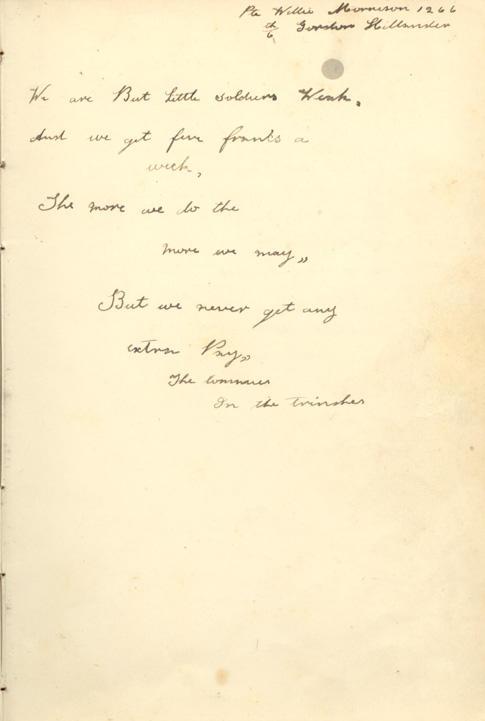 Pte Willie Morrison 1266
6th Gordon Hillander
We are But little soldiers Weak,
And we get five franks a
week,
The more we do the
more we may,,
But we never get any
extra Pay,,
The
In the trinshes